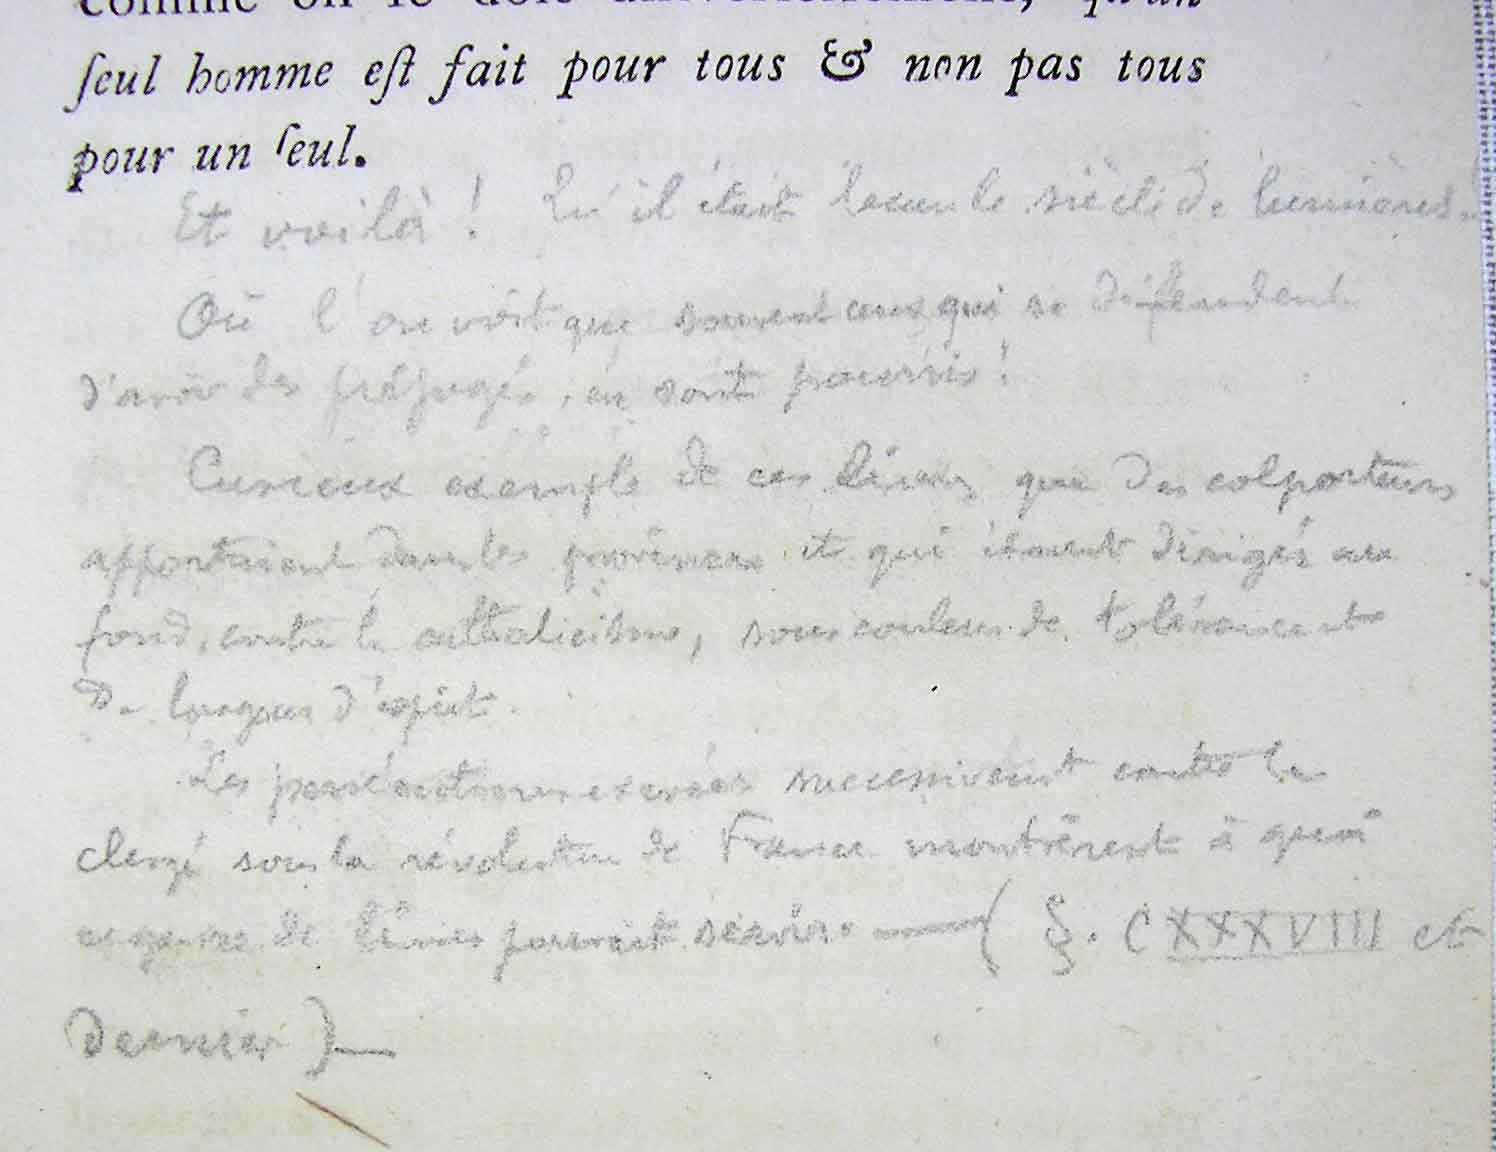 seul homme est fait pour tous & non pas tous
pour un seul.
Et voilà ! Qu'il était beau le siècle de lumières.
Où l'on voit que souvent ceux qui se défendent
d'avoir des préjugés, en sont pourris !
Curieux exemple de ces livres que des colporteurs
apportaient dans les provinces et qui étaient dirigés au
fond, contre le catholicisme, sous couleur de tolérance et
de largeur d'esprit.
Les persécutions exercées successivement contre le
clergé sous la révolution de France montrèrent à quoi
ce genre de livres pouvait servir. — ( §. CXXXVIII et
dernier ) —